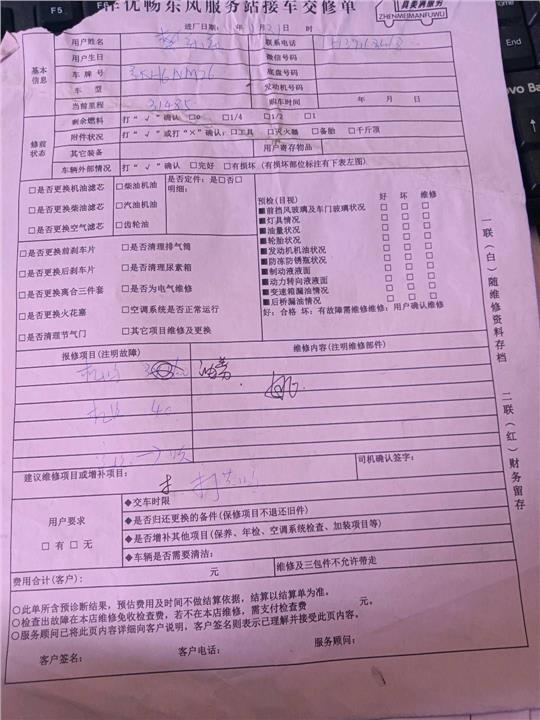 优畅东风服务站接车交修单
真美满服务
ZHENMEIMANFUWU
进厂日期: 年 月 21 日 时
基本信息
用户姓名 联系电话
用户生日 微信号码
车牌号 底盘号码
车型 发动机号码
当前里程 31485 购车时间 年 月 日
修前状态
剩余燃料 打“√”确认 □0 □1/4 □1/2 □1
附件状况 打“√”或打“×”确认: □工具 □灭火器 □备胎 □千斤顶
其它装备 用户寄存物品
车辆外部情况 打“√”确认 □完好 □有损坏(有损坏部位标注有下表左图)
□是否更换机油滤芯 □柴油机油 是否定件: 是□否□
明细:
□是否更换柴油滤芯 □汽油机油
□是否更换空气滤芯 □齿轮油
□是否更换前刹车片 □是否清理排气筒
□是否更换后刹车片 □是否清理尿素箱
□是否更换离合三件套 □是否为电气维修
□是否更换火花塞 □空调系统是否正常运行
□是否清理节气门 □其它项目维修及更换
预检(目视) 好 坏 维修
■前挡风玻璃及车门玻璃状况 □ □ □
■灯具情况 □ □ □
■油量状况 □ □ □
■轮胎状况 □ □ □
■发动机机油状况 □ □ □
■防冻防锈瓶状况 □ □ □
■制动液液面 □ □ □
■动力转向液液面 □ □ □
■变速箱漏油情况 □ □ □
■后桥漏油情况 □ □ □
好: 合格 坏: 有故障需维修维修: 用户确认维修
报修项目(注明故障) 维修内容(注明维修部件)
建议维修项目或增补项目: 司机确认签字:
用户要求
□有 □无
◆交车时限
◆是否归还更换的备件(保修项目不退还旧件)
◆是否增补其他项目(保养、年检、空调系统检查、加装项目等)
◆车辆是否需要清洁:
费用合计(客户): 元 维修及三包件不允许带走
○此单所含预诊断结果,预估费用及时间不做结算依据,结算以结算单为准。
○检查出故障在本店维修免收检查费,若不在本店维修,需支付检查费 元。
○服务顾问已将此页内容详细向客户说明,客户签名则表示已理解并接受此页内容。
客户签名: 客户电话: 服务顾问:
一联(白)随维修资料存档
二联(红)财务留存
F5
F6
End